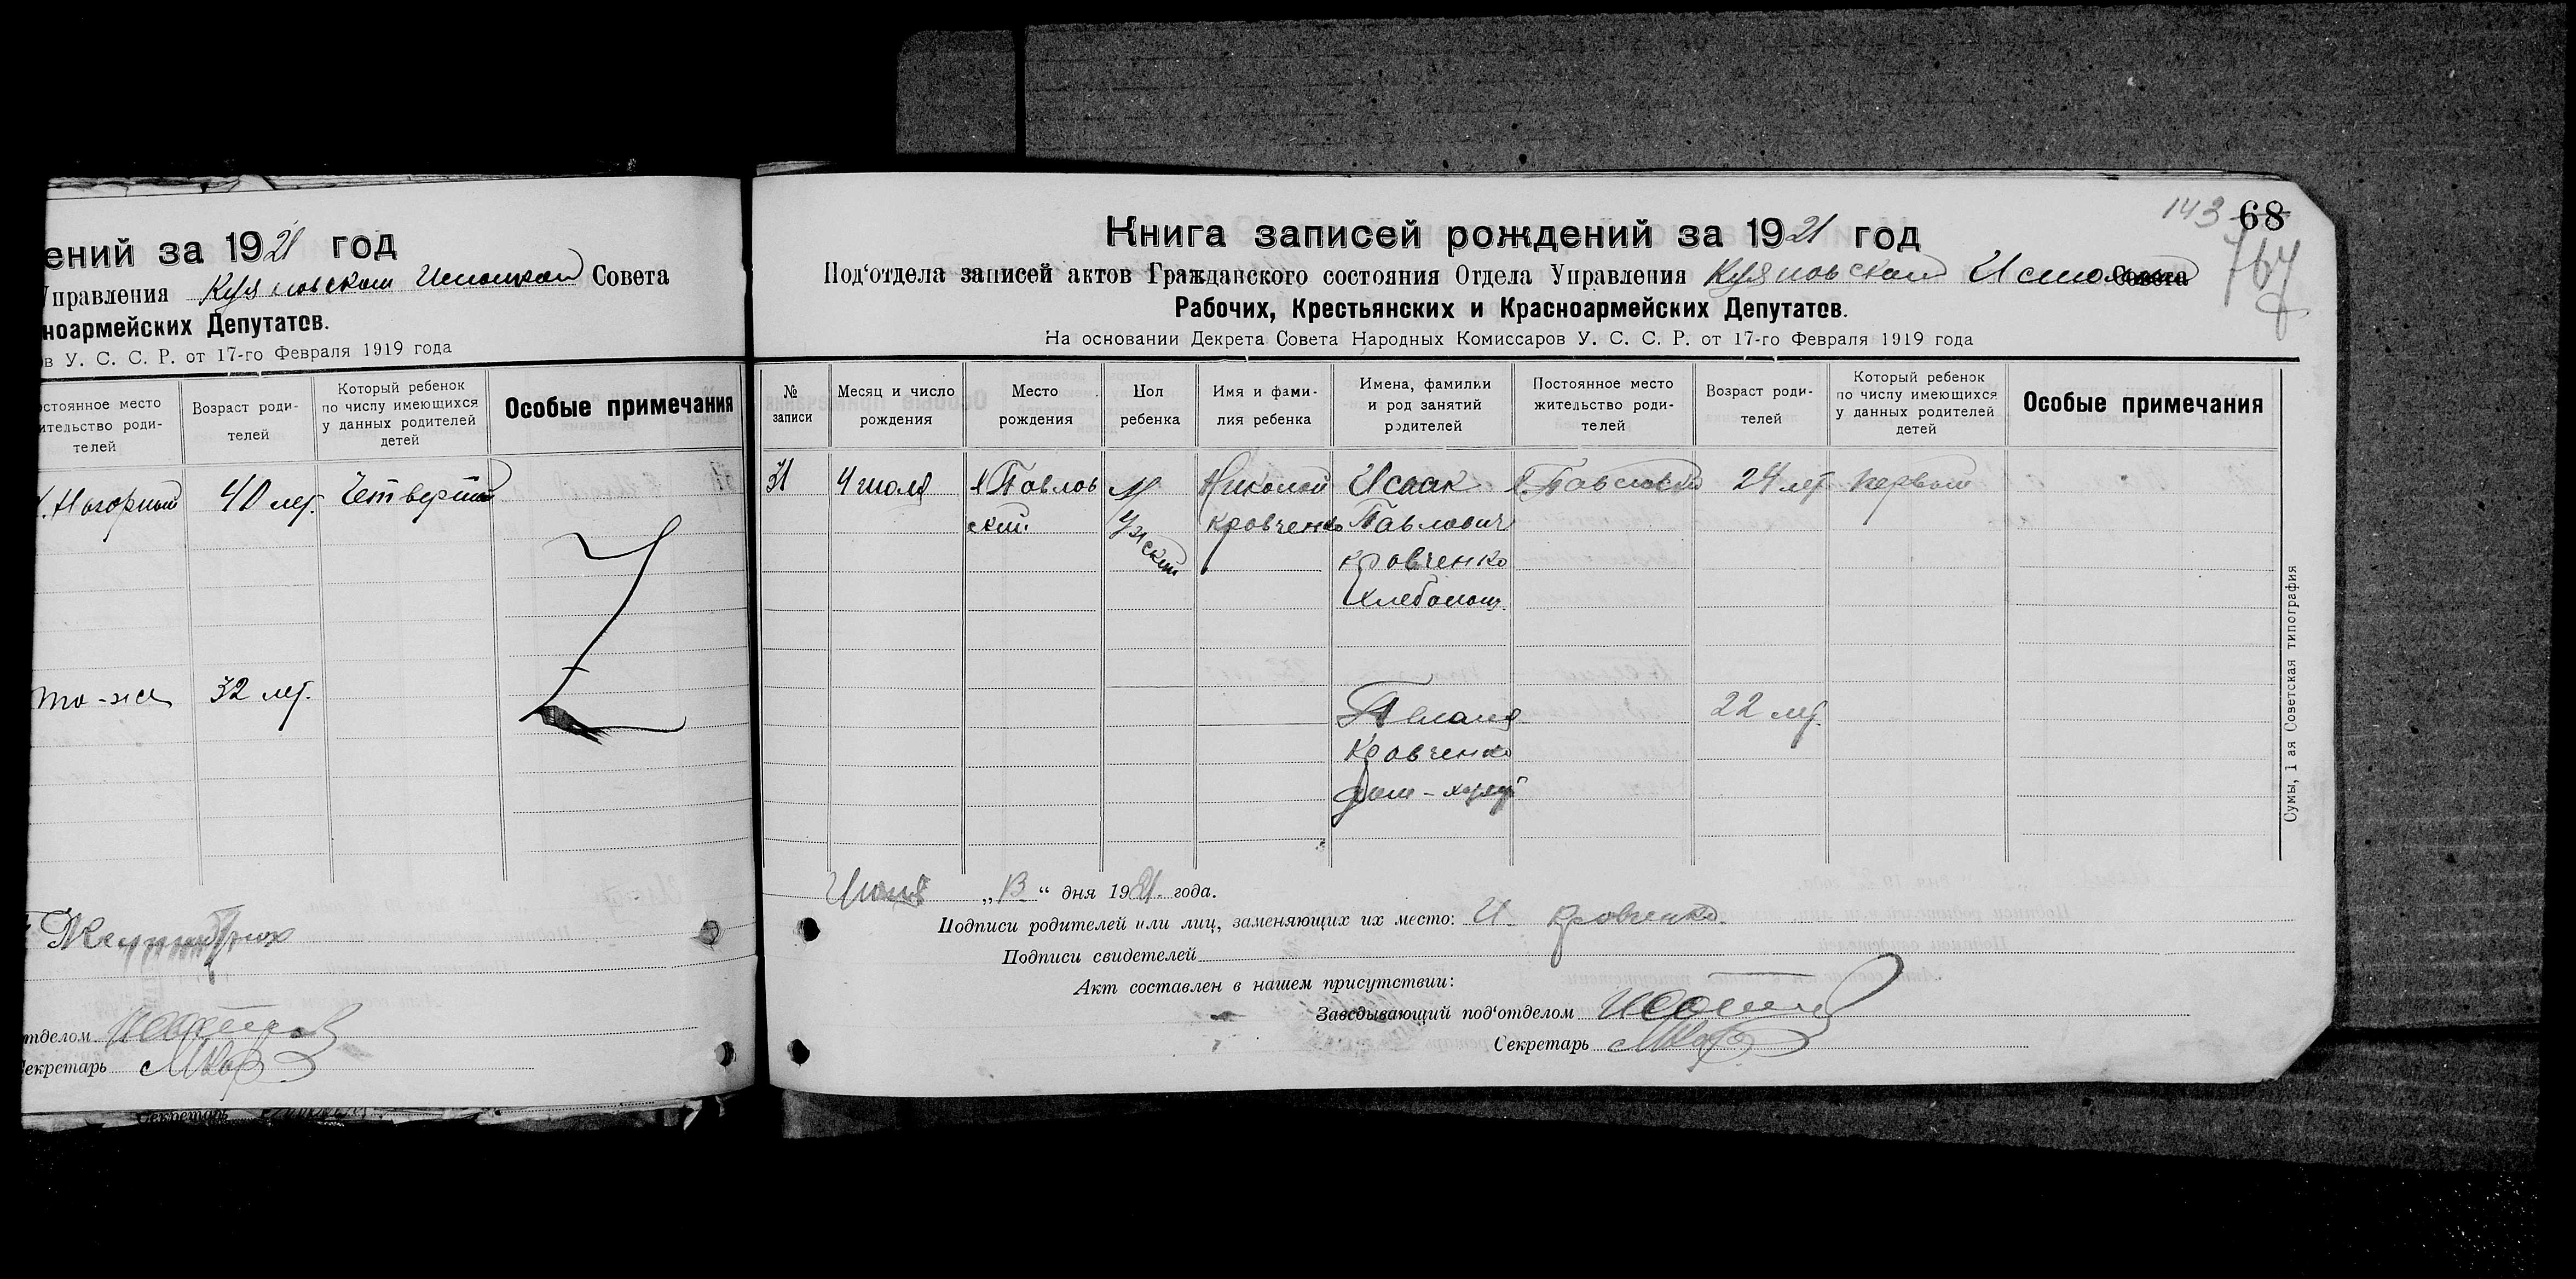 ений за 1921 год
Управления Совета
ноармейских Депутатов.
в У. С. С. Р. от 17-го Февраля 1919 года
остоянное место
ительство роди-
телей
Возраст роди-
телей
Который ребенок
по числу имеющихся
у данных родителей
детей
Особые примечания
х. Нагорный 40 лет. Четвертый
то-же 32 лет.
отделом
Секретарь
Секретарь
143 68
767
Книга записей рождений за 1921 год
Под‘отдела записей актов Гражданского состояния Отдела Управления Совета
Рабочих, Крестьянских и Красноармейских Депутатов.
На основании Декрета Совета Народных Комиссаров У. С. С. Р. от 17-го Февраля 1919 года
№
записи
Месяц и число
рождения
Место
рождения
Пол
ребенка
Имя и фами-
лия ребенка
Имена, фамилии
и род занятий
родителей
Постоянное место
жительство роди-
телей
Возраст роди-
телей
Который ребенок
по числу имеющихся
у данных родителей
детей
Особые примечания
31 4 июля х Павлов М Николай Исаак х. Павловский 24 лет первый
ский. ужской Кровченко Павлович
Кровченко
Хлебопаш.
22 лет.
Кровченко
Дом-хозяй
„13“ дня 1921 года.
Подписи родителей или лиц, заменяющих их место: И. Кровченко.
Подписи свидетелей
Акт составлен в нашем присутствии:
Заведывающий под‘отделом
Секретарь
Сумы, 1 ая Советская типография